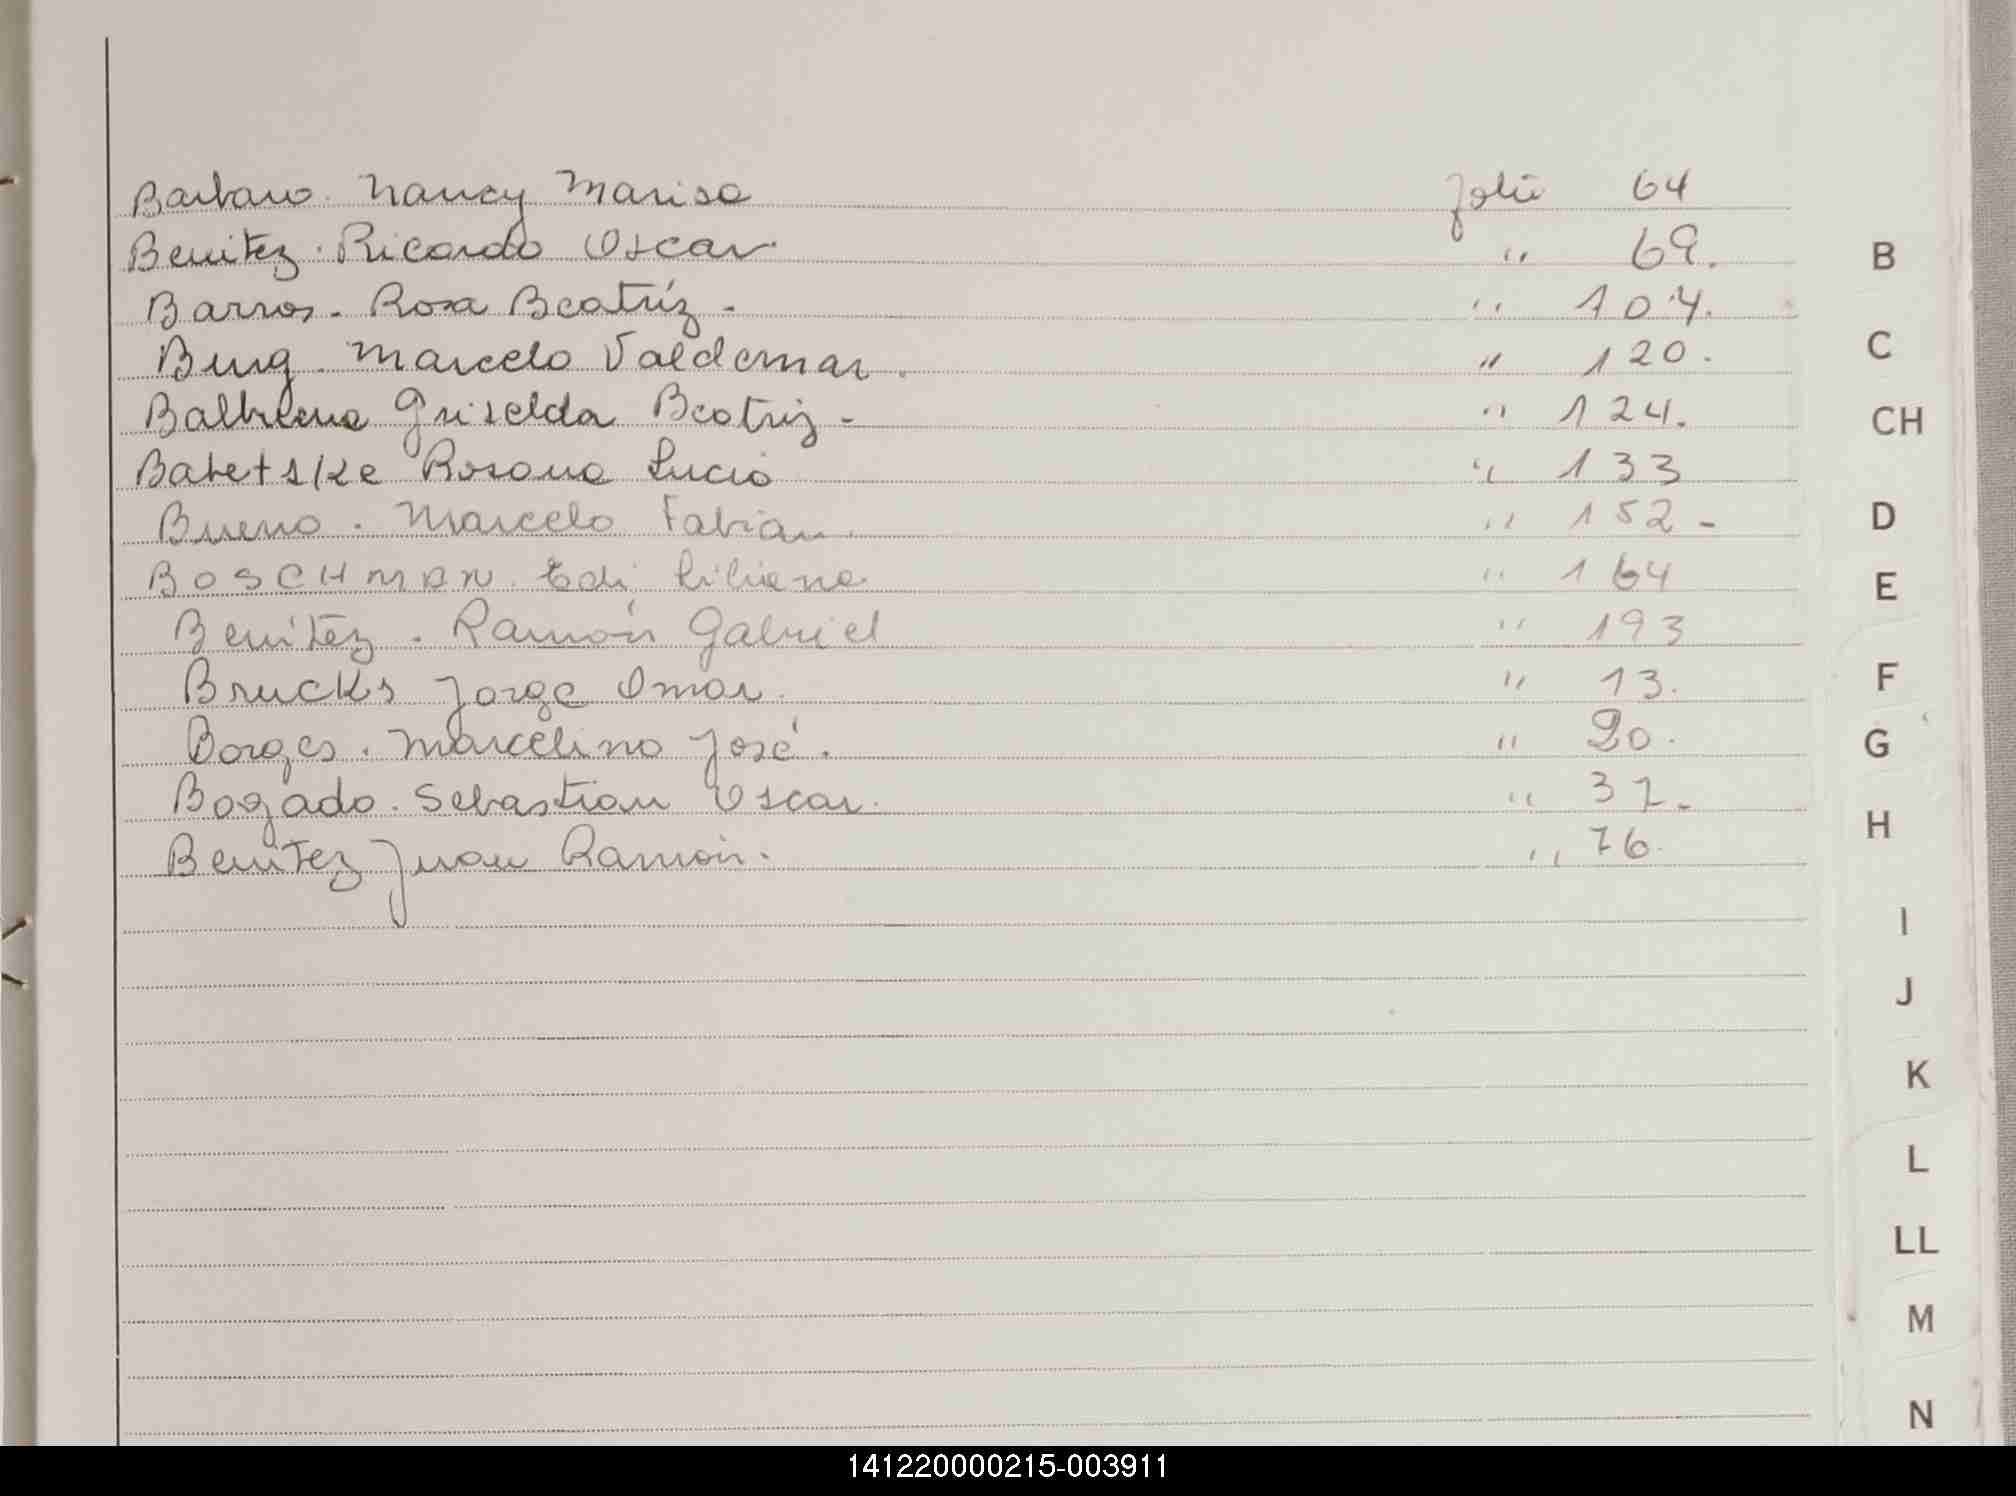 Barbaro. Nancy Marisa folio 64
Benitez. Ricardo Oscar. " 69.
Barros. Rosa Beatríz - " 107.
Burg. Marcelo Valdemar. " 120.
Griselda Beatriz - " 124.
Rosana Lucia " 133
Bueno. Marcelo Fabian. " 152 -
BOSCHman. Edi Liliana " 164
Benítez. Ramón Gabriel " 193
Brucks Jorge Omar. " 13.
Borges. Marcelino José. " 20.
Bogado. Sebastian Oscar. " 37.
Benitez Juan Ramón. " 76.
B
C
CH
D
E
F
G
H
I
J
K
L
LL
M
N
141220000215-003911